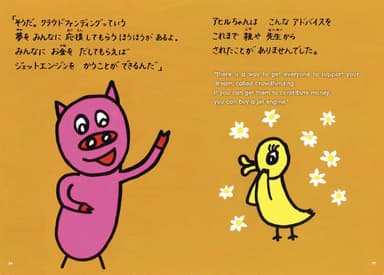 「そうだ。クラウドファンディングっていう
夢を みんなに 応援してもらう ほうほうが あるよ。
みんなに お金を だしてもらえば
ジェットエンジンを かうことができるんだ」
アヒルちゃんは こんな アドバイスを
これまで 親や 先生から
されたことが ありませんでした。
"There is a way to get everyone to support your
dream, called crowdfunding.
If you can get them to contribute money,
you can buy a jet engine."